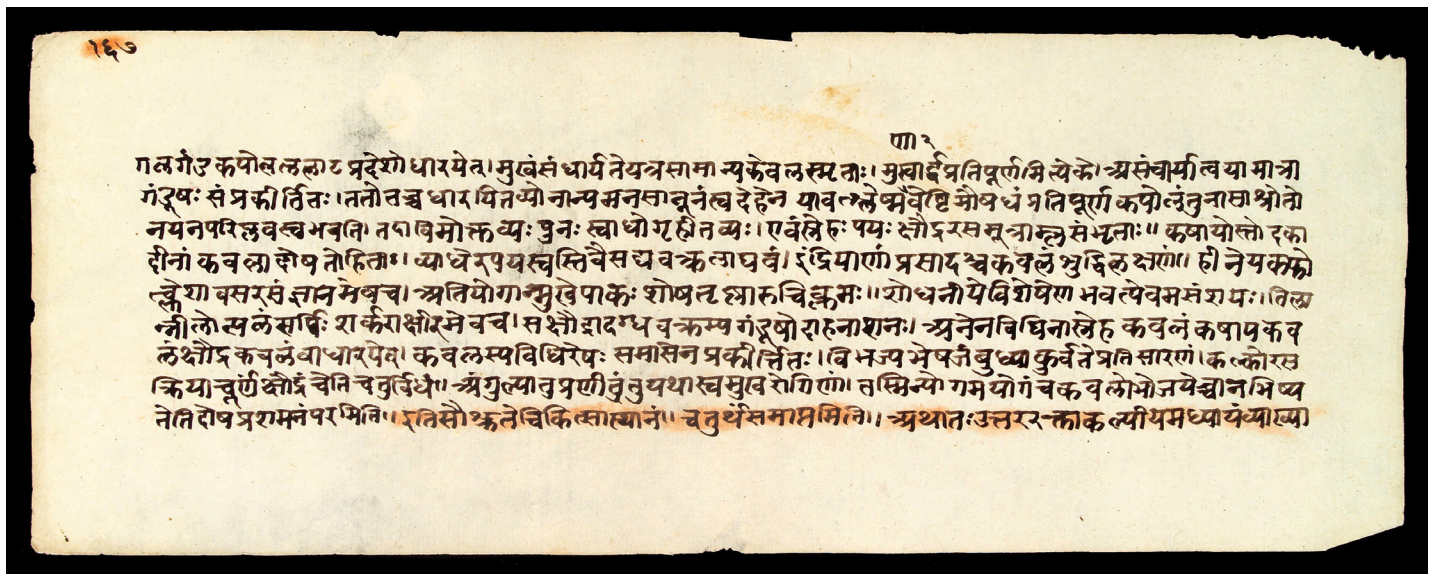 १६७
गा २
गलगंडकपोलललाटप्रदेशोधारयेत्। मुखंसंधार्यतेयत्रसामान्यकवलस्मृताः। मुखार्द्धप्रतिपूर्णमित्येके। असंचार्यात्वयामात्रा
गंडूषः संप्रकीर्तितः। ततोवच्चधारयितव्योनान्यमनसानूनंस्वदेहेन यावत्श्लेष्मवेष्टिमौषधं प्रतिपूर्णकपोलंतुनासाश्रोतो
नयनपरिप्लवस्वभवति। तदाविमोक्तव्यः पुनः स्वाधोगृहीतव्यः। एवंस्नेहः पयः क्षौद्ररसमूत्राम्लसंभृताः॥ कषायोस्तोदका
दीनां कवलादोषतोहिताः। व्याधेरपचयस्वस्तिवैसद्यवक्रलाघवं। इंद्रियाणां प्रसादश्चकवलेशुद्धिलक्षणां। हीनेयकफो
त्क्लेशावसरसंज्ञानमेवच। अतियोगान्मुखेपाकः शोषतृष्णारुचिक्लमः॥ शोधनीयेविशेषेण भवत्येवमसंशयः। तिला
न्नीलोत्पलंसर्पिः शर्कराक्षीरमेवच। सक्षौद्रादग्धवक्रस्यगंडूषोदाहनाशनः। अनेनविधिनास्नेह कवलंकषायकेव
लंक्षौद्रकवलंवाधारयेत्। कवलस्यविधिरेषः समासेनप्रकीर्त्तितः। विभज्यभेषजंबुध्याकुर्वतेप्रतिसारणं। कल्कोरस
क्रियाचूर्णंक्षौद्रंचेतिचतुर्विधं॥ अंगुल्यातुप्रणीतुंतुयथास्वमुखरोगिणां। तस्मिन्योगमयोगंचकवलोभोजयेच्चानभिष्य
नेतिदोषप्रशमनंपरमिति॥ इतिसौश्रुतेचिकित्सास्थानं॥ चतुर्थंसमाप्तमिति॥ अथातःउत्तररक्ताकल्पीयमध्यायंव्याख्या